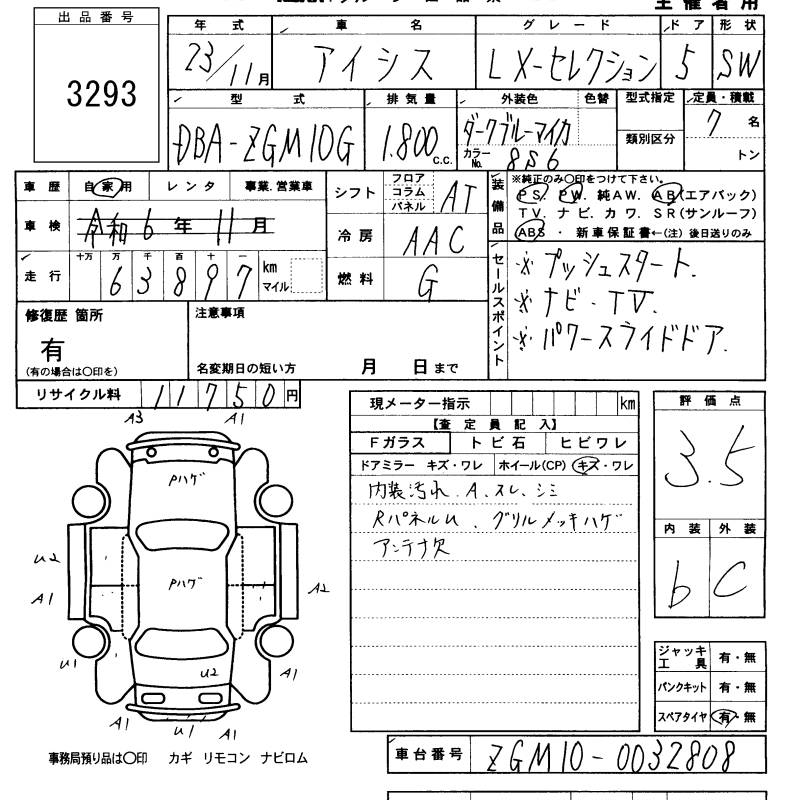 主催者用
出品番号
3293
年式 車名 グレード ドア 形状
23/11月 アイシス LX-セレクション 5 SW
型式 排気量 外装色 色替 型式指定 定員・積載
DBA-ZGM10G 1.800 c.c. ダークブルーマイカ 類別区分 7名
カラーNo. 8S6 トン
車歴 自家用 レンタ 事業.営業車
車検 令和6年11月
走行 十万 万 千 百 十 一
63897 km マイル
シフト フロア コラム パネル AT
冷房 AAC
燃料 G
装備品 ※純正のみ〇印をつけて下さい。
PS. PW. 純AW. AB(エアバック)
TV. ナビ. カワ. SR(サンルーフ)
ABS ・ 新車保証書←(注) 後日送りのみ
セールスポイント
※ プッシュスタート.
※ ナビ・TV.
※ パワースライドドア.
修復歴 箇所
有
(有の場合は〇印を)
注意事項
名変期日の短い方 月 日まで
リサイクル料 11750円
A3 A1
Pハゲ
Pハゲ
U2
A1
A2
U1
U2
A1
A1 U1 A1
事務局預り品は〇印 カギ リモコン ナビロム
現メーター指示 km
【査定員記入】
Fガラス トビ石 ヒビワレ
ドアミラー キズ・ワレ ホイール(CP) キズ・ワレ
内装汚れ.A.スレ.シミ
RパネルU、グリルメッキハゲ
アンテナ欠
評価点
3.5
内装 外装
b C
ジャッキ工具 有・無
パンクキット 有・無
スペアタイヤ 有・無
車台番号 ZGM10-0032808